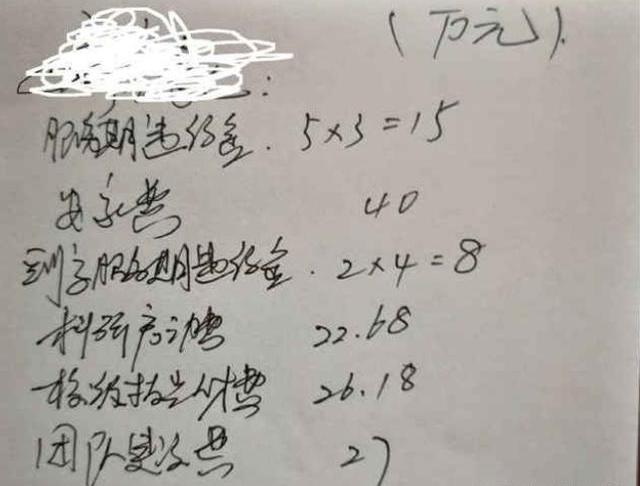 (万元).
:
服务期违约金. 5×3=15
安家费 40
到字服务期违约金. 2×4=8
科研启动费 22.68
校级拔尖人才费 26.18
团队建设费 27